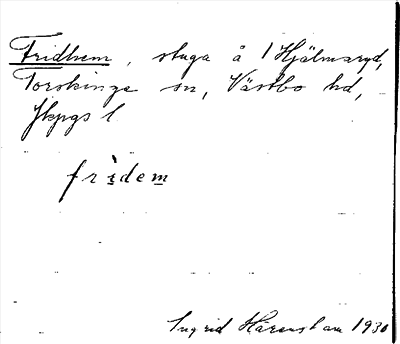 Fridhem, stuga å 1 Hjälmaryd,
Torskinge sn, Västbo hd,
Jkpgs l
frìdem
Ingrid Härenstam 1930